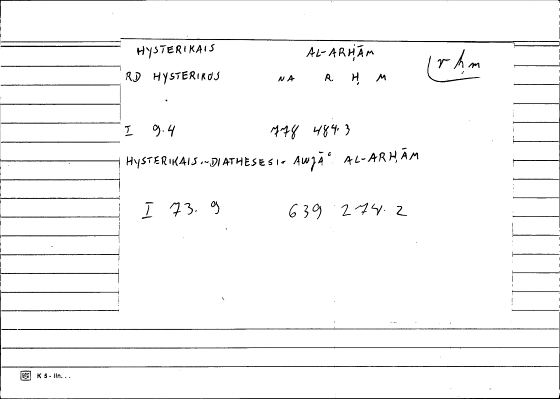 HYSTERIKAIS AL-ARḤĀM
r ḥ m
RD HYSTERIKOS NA R Ḥ M
I 9.4 778 484.3
HYSTERIKAIS.-DIATHESESI- AWǦĀʿ AL-ARḤĀM
I 73.9 639 274.2
K 5 - lln. . .